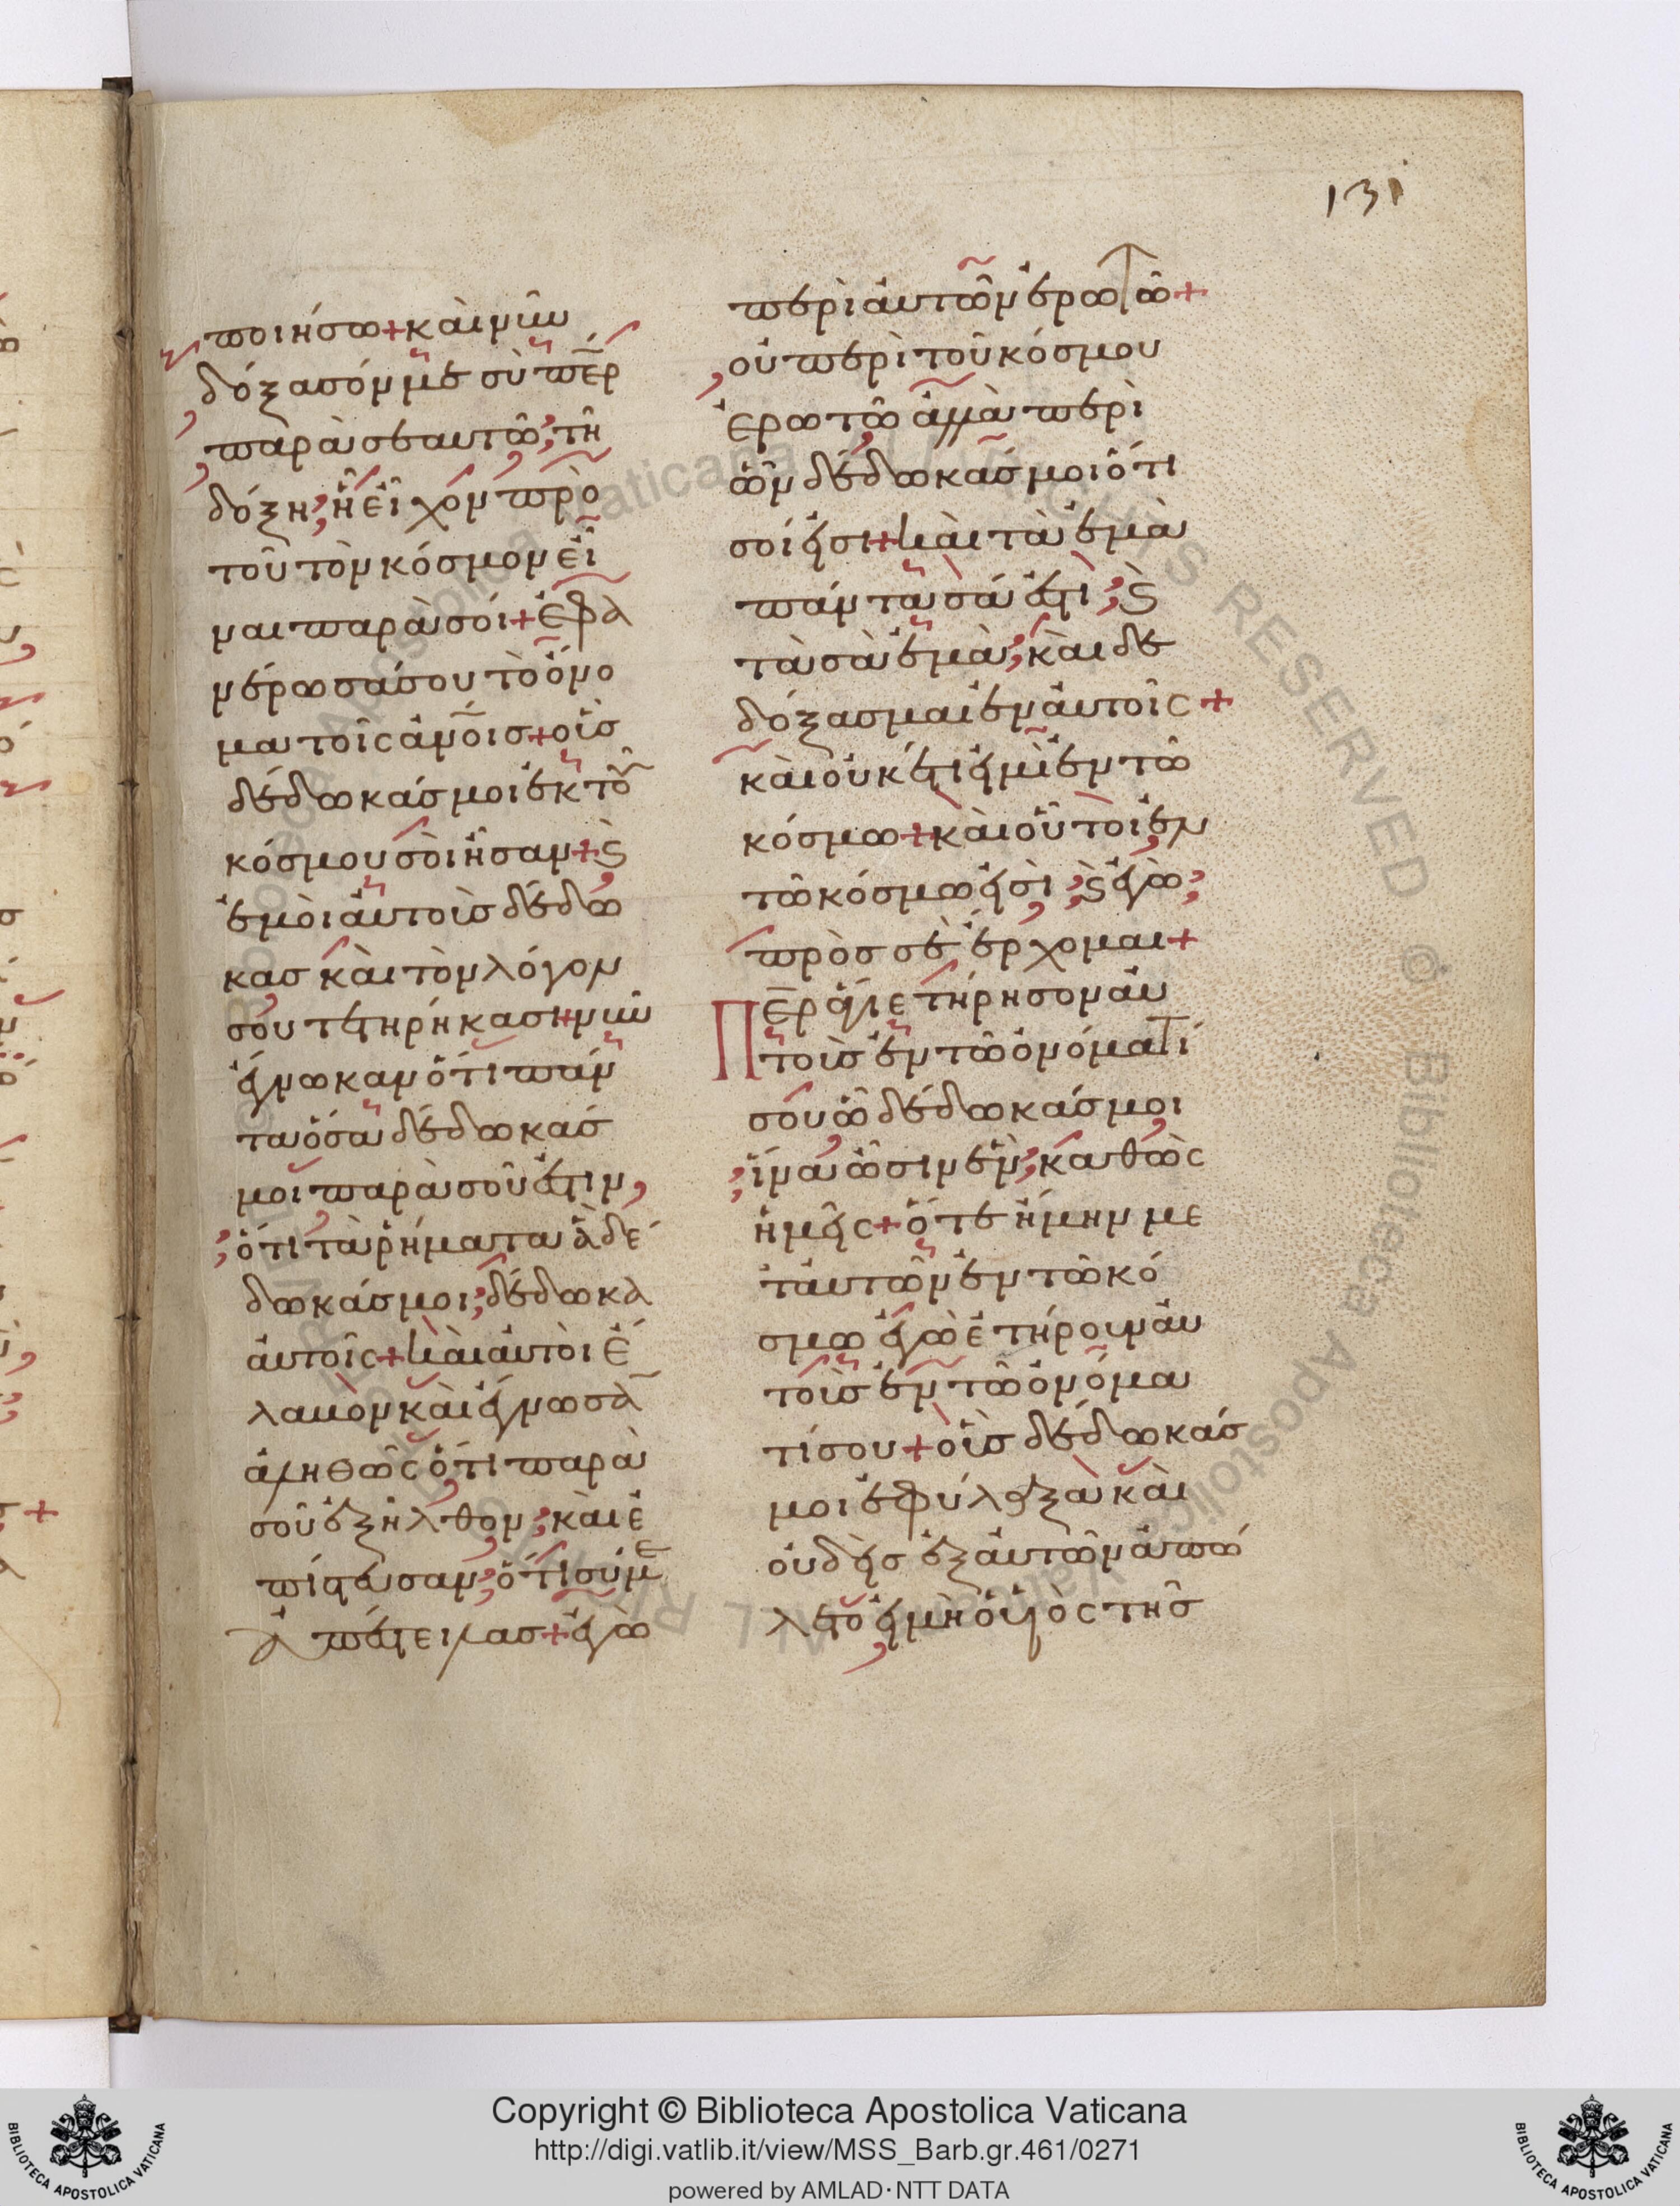 131
ποιήσω + καὶ νῦν
δόξασόν με σὺ πε̅ρ
παρὰ σεαυτῶ, τῆ
δόξη, ἧ εἶχον πρὸ
τοῦ τὸν κόσμον εἶ
ναι παρὰ σοί + ἐφα
νέρωσά σου τὸ ὄνο
μα τοῖς ἀν̅οις + οὓσ
δέδωκάσ μοι ἐκ τοῦ
κόσμου σοὶ ἦσαν + ϗ
ἐμοὶ αὐτοὺσ δέδω
κασ καὶ τὸν λόγον
σου τετηρήκασι + νῦν
ἔγνωκαν ὅτι πάν
τα ὅσα δέδωκάσ
μοι παρὰ σοῦ ἐστιν,
ὅτι τὰ ῥήματα ἃ δέ
δωκάσ μοι, δέδωκα
αὐτοῖς + καὶ αὐτοὶ ἔ
λαβον καὶ ἔγνωσα
ἀληθῶς ὅτι παρὰ
σοῦ ἐξῆλθον, καὶ ἐ
πίστευσαν, ὅτι σύ με
ἀπέστειλασ + ἐγὼ
περὶ αὐτῶν ἐρωτῶ +
οὐ περὶ τοῦ κόσμου
ἐρωτῶ ἀλλὰ περὶ
ὧν δέδωκάσ μοι ὅτι
σοί εἰσι + καὶ τὰ ἐμὰ
πάντα σά ἐστι, ϗ
τὰ σὰ ἐμὰ, καὶ δε
δόξασμαι ἐν αὐτοῖς +
καὶ οὐκέτι εἰμὶ ἐν τῶ
κόσμω + καὶ οὗτοι ἐν
τῶ κόσμω εἰσὶ, ϗ ἐγὼ,
πρὸσ σὲ ἔρχομαι +
Πε̅ρ ἅγιε τήρησον αὐ
τοὺσ ἐν τῶ ὀνόματί
σου ὧ δέδωκάσ μοι
ἵνα ὦσιν ἓν, καθὼς
ἡμεῖς + ὅτε ἤμην με
τ' αὐτῶν ἐν τῶ κό
σμω ἐγὼ ἐτήρουν αὐ
τοὺσ ἐν τῶ ὀνόμα
τί σου + οὓσ δέδωκάσ
μοι ἐφύλαξα καὶ
οὐδεὶσ ἐξ αὐτῶν ἀπώ
λετο εἰ μὴ ὁ υἱὸς τῆσ
Copyright © Biblioteca Apostolica Vaticana
http://digi.vatlib.it/view/MSS_Barb.gr.461/0271
powered by AMLAD·NTT DATA
BIBLIOTECA APOSTOLICA VATICANA
BIBLIOTECA APOSTOLICA VATICANA